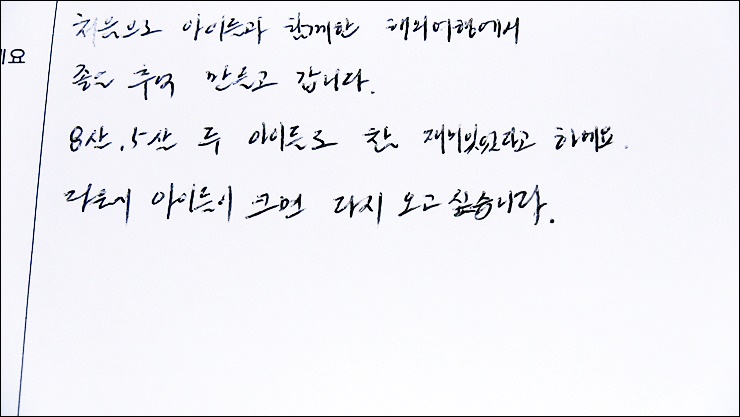 처음으로 아이들과 함께한 해외여행에서
요
좋은 추억 만들고 갑니다.
8살, 5살 두 아이들도 참 재미있었다고 하네요.
아이들이 크면 다시 오고 싶습니다.